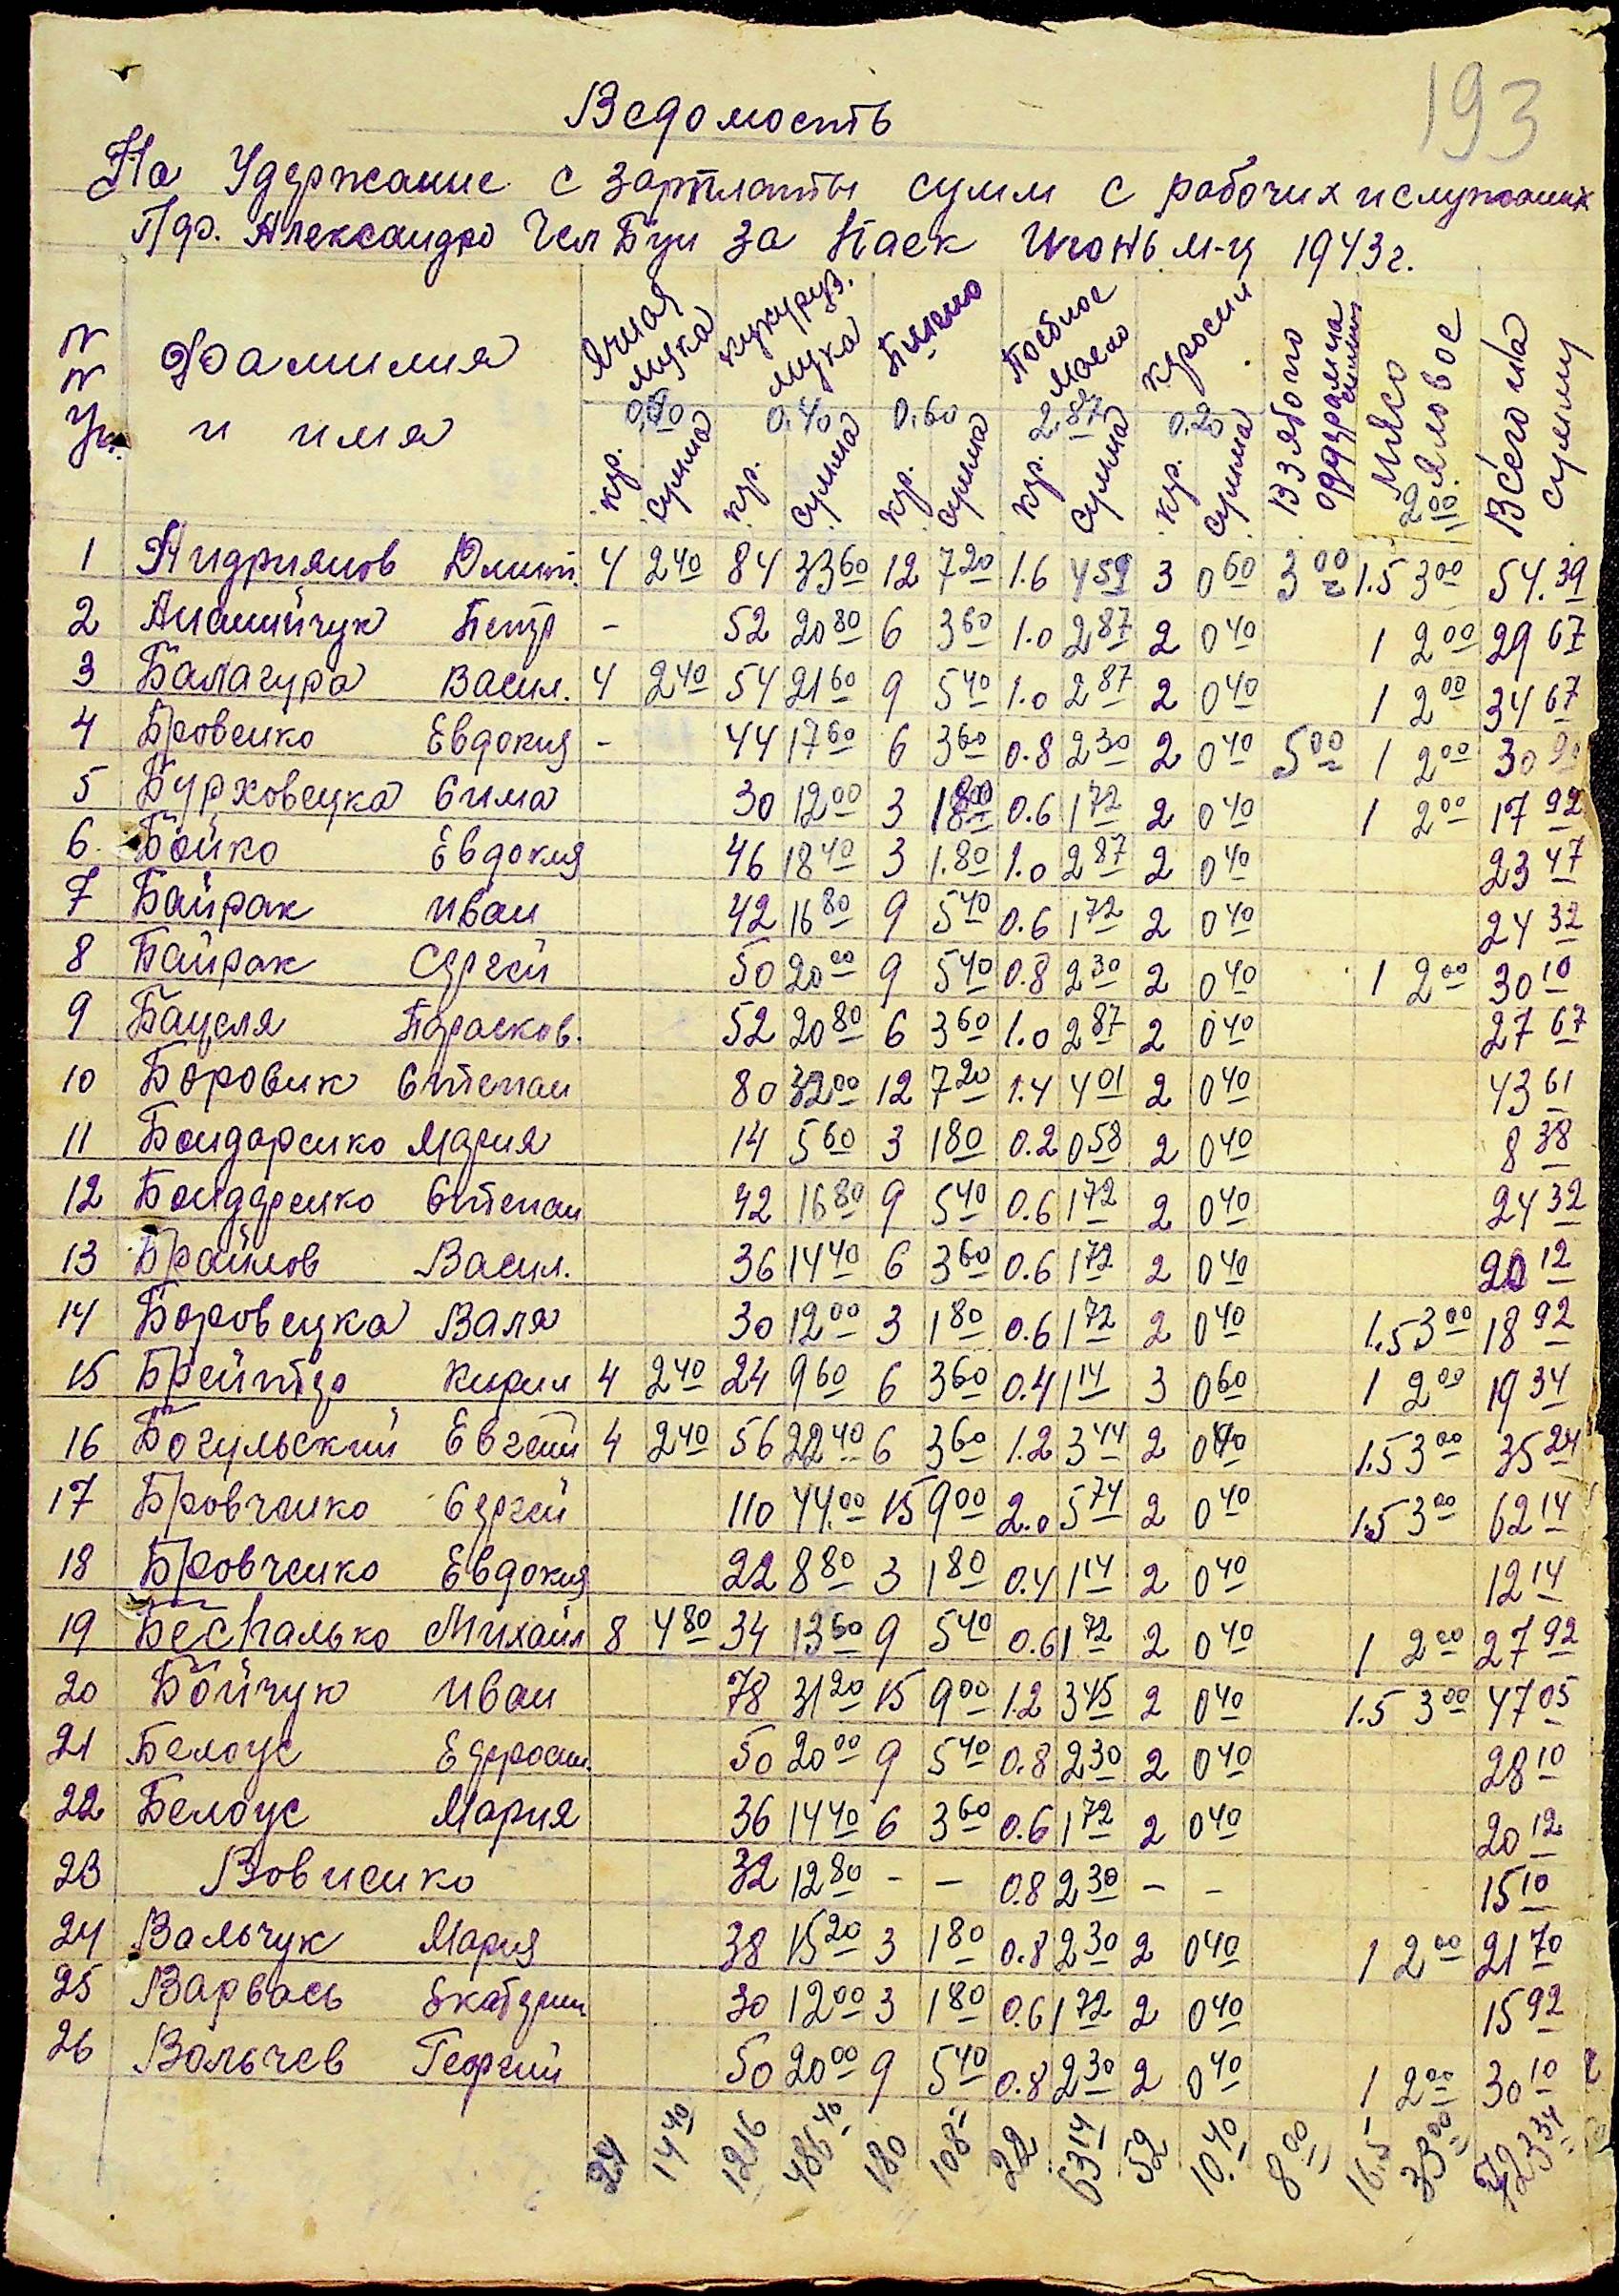 193
Ведомость
На Удержание с зарплаты сумм с рабочих и служащих
Пдр. Александро за Паек Июнь м-ц 1943 г.
№ № Фамилия и имя Ячная мука Кукуруз. мука Пшено Посное масло Керосин Взябого Мясо Яловое 2.00 Всего на сумму
0.60 0.40 0.60 2.87 0.20
кгр. сумма кгр. сумма кгр. сумма кгр. сумма кгр. сумма
1 Андриянов Дмит. 4 2 40 84 33 60 12 7 20 1.6 4 59 3 0 60 3 00 1.5 3 00 54.39
2 Ананийчук Петр - 52 20 80 6 3 60 1.0 2 87 2 0 40 1 2 00 29 67
3 Балагура Васил. 4 2 40 54 21 60 9 5 40 1.0 2 87 2 0 40 1 2 00 34 67
4 Бровенко Евдокия - 44 17 60 6 3 60 0.8 2 30 2 0 40 5 00 1 2 00 30 90
5 Бурховецка Сима 30 12 00 3 1 80 0.6 1 72 2 0 40 1 2 00 17 92
6. Бойко Евдокия 46 18 40 3 1.80 1.0 2 87 2 0 40 23 47
7 Байрак Иван 42 16 80 9 5 40 0.6 1 72 2 0 40 24 32
8 Байрак Сергей 50 20 00 9 5 40 0.8 2 30 2 0 40 1 2 00 30 10
9 Бацеля Парасков. 52 20 80 6 3 60 1.0 2 87 2 0 40 27 67
10 Боровик Степан 80 32 00 12 7 20 1.4 4 01 2 0 40 43 61
11 Бондаренко Мария 14 5 60 3 1 80 0.2 0 58 2 0 40 8 38
12 Бондаренко Степан 42 16 80 9 5 40 0.6 1 72 2 0 40 24 32
13 Браилов Васил. 36 14 40 6 3 60 0.6 1 72 2 0 40 20 12
14 Боровецка Валя 30 12 00 3 1 80 0.6 1 72 2 0 40 1.5 3 00 18 92
15 Кирил 4 2 40 24 9 60 6 3 60 0.4 1 14 3 0 60 1 2 00 19 34
16 Богульский Евгений 4 2 40 56 22 40 6 3 60 1.2 3 44 2 0 40 1.5 3 00 35 24
17 Бровченко Сергей 110 44.00 15 9 00 2.0 5 74 2 0 40 1.5 3 00 62 14
18 Бровченко Евдокия 22 8 80 3 1 80 0.4 1 14 2 0 40 12 14
19 Беспалько Михаил 8 4 80 34 13 60 9 5 40 0.6 1 72 2 0 40 1 2 00 27 92
20 Бойчук Иван 78 31 20 15 9 00 1.2 3 45 2 0 40 1.5 3 00 47 05
21 Белоус Ефросин. 50 20 00 9 5 40 0.8 2 30 2 0 40 28 10
22 Белоус Мария 36 14 40 6 3 60 0.6 1 72 2 0 40 20 12
23 Вовненко 32 12 80 - - 0.8 2 30 - - 15 10
24 Вальчук Мария 38 15 20 3 1 80 0.8 2 30 2 0 40 1 2 00 21 70
25 Варвась Екатерин 30 12 00 3 1 80 0.6 1 72 2 0 40 15 92
26 Вольчев Георгий 50 20 00 9 5 40 0.8 2 30 2 0 40 1 2 00 30 10
24 14 40 1216 486 40 180 108 22 63 14 52 10.40 8 00 16.5 33 00 723 34